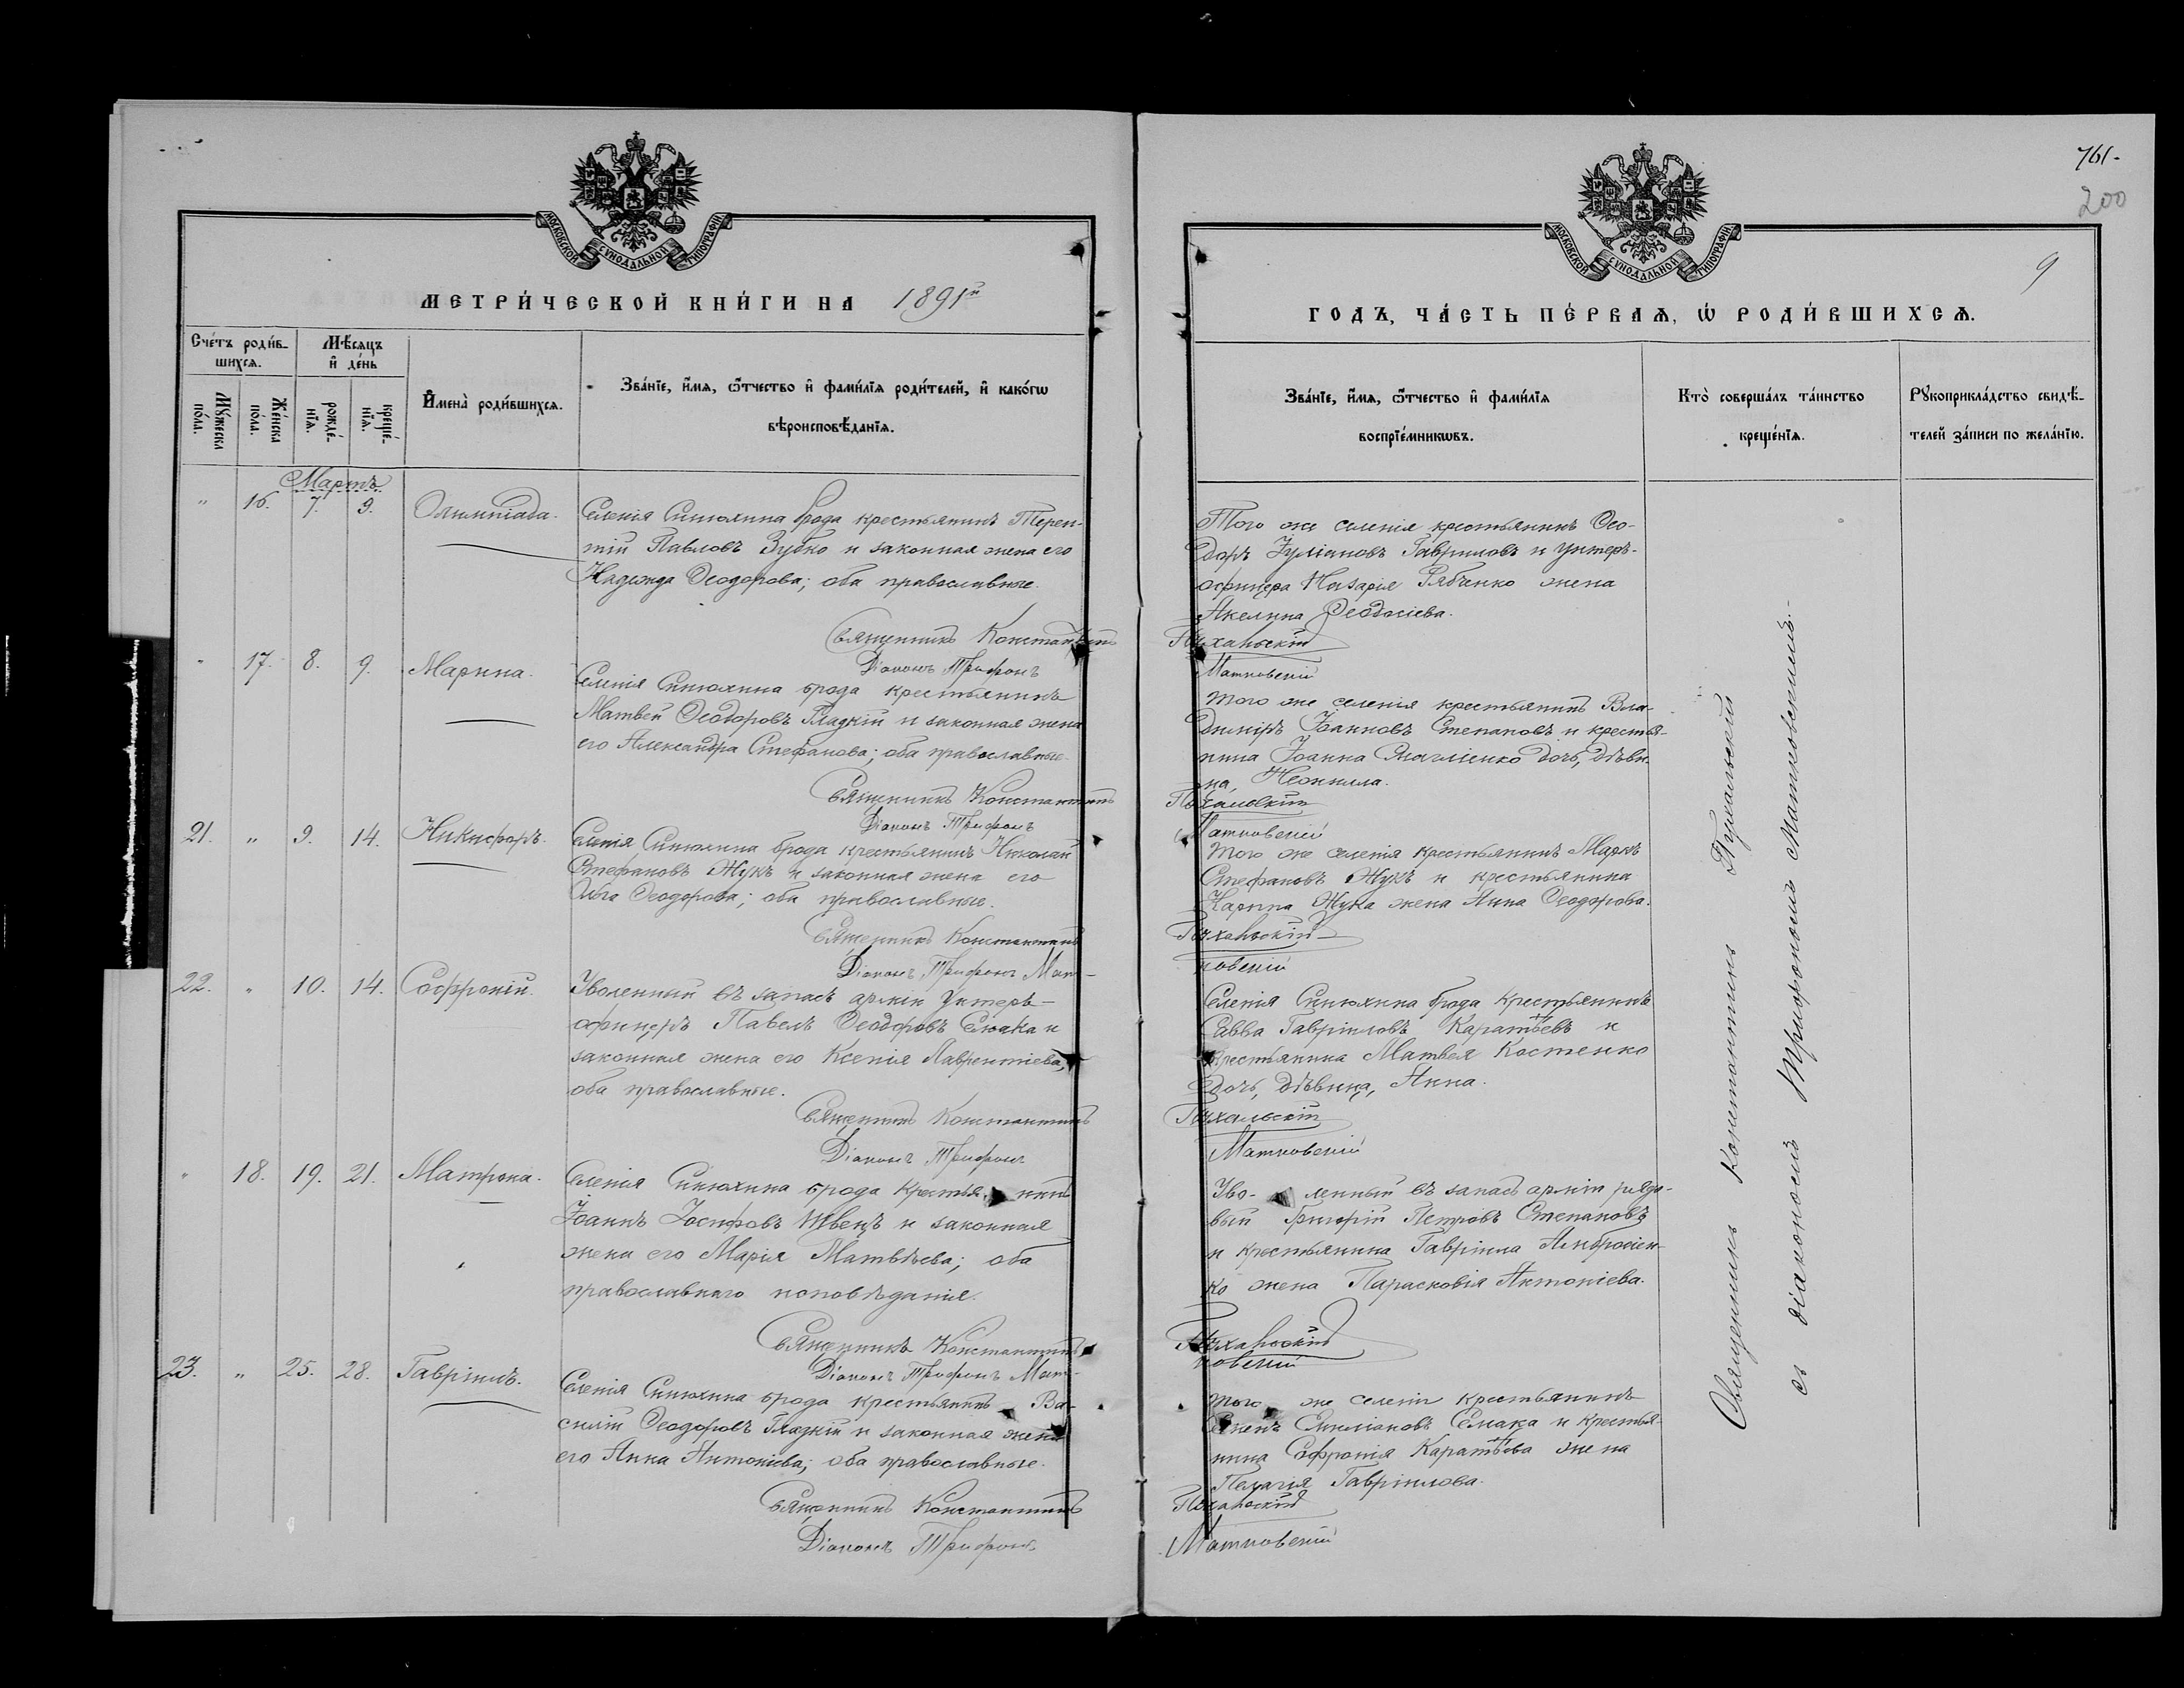 МОСКОВСКОЙ СѴНОДАЛЬНОЙ ТИПОГРАФІИ
МЕТРИ́ЧЕСКОЙ КНИ́ГИ НА 1891й
Сче́тъ роди́в-
шихсѧ.
Мѣ́сѧцъ
и҆ де́нь
Мꙋ́жеска
по́ла.
Же́нска
по́ла.
рожде́-
нїѧ.
креще́-
нїѧ.
И҆мена̀ роди́вшихсѧ.
Зва́нїе, и҆́мѧ, ѻ҆́тчество и҆ фами́лїѧ роди́телей, и҆ како́гѡ
вѣроисповѣ́данїѧ.
Мартъ
" 16. 7. 9. Олимпіада.
Селенія Синюхина брода крестьянинъ Терен-
тій Павловъ Зубко и законная жена его
Надежда Ѳеодорова; оба православные.
Священникъ Константинъ
Діаконъ Трифонъ
" 17. 8. 9. Марина.
Селенія Синюхина брода крестьянинъ
Матвей Ѳеодоровъ Гладкій и законная жена
его Александра Стефанова; оба православные.
Священникъ Константинъ
Діаконъ Трифонъ
21. " 9. 14. Никифоръ.
Селенія Синюхина брода крестьянинъ Николай
Стефановъ Жукъ и законная жена его
Ѳеодорова; оба православные.
Священникъ Константинъ
Діаконъ Трифонъ Мат-
22. " 10. 14. Софроній.
Уволенный въ запасъ арміи унтеръ-
офицеръ Павелъ Ѳеодоровъ Семака и
законная жена его Ксенія Лаврентіева,
оба православные.
Священникъ Константинъ
Діаконъ Трифонъ
" 18. 19. 21. Матрона.
Селенія Синюхина брода крестья нинъ
Іоаннъ Іосифовъ Швецъ и законная
жена его Марія Матвѣева; оба
православнаго исповѣданія.
Священникъ Константинъ
Діаконъ Трифонъ Мат-
23. " 25. 28. Гавріилъ.
Селенія Синюхина брода крестьянинъ Ва-
силій Ѳеодоровъ Гладкій и законная жена
его Анна Антоніева; оба православные.
Священникъ Константинъ
Діаконъ Трифонъ
761.
200
9
МОСКОВСКОЙ СѴНОДАЛЬНОЙ ТИПОГРАФІИ
ГОДЪ, ЧА́СТЬ ПЕ́РВАѦ, Ѡ҆ РОДИ́ВШИХСѦ.
Зва́нїе, и҆́мѧ, ѻ҆́тчество и҆ фами́лїѧ
воспрїе́мникѡвъ.
Кто̀ соверша́лъ та́инство
креще́нїѧ.
Рꙋкоприкла́дство свидѣ́-
телей за́писи по жела́нїю.
Того же селенія крестьянинъ Ѳео-
доръ Іуліановъ Гавриловъ и унтеръ-
офицера Назарія Рябченко жена
Акелина Ѳеодосіева.
Пухальскій
Матковскій
Того же селенія крестьянинъ Вла-
диміръ Іоанновъ Степановъ и крестья-
нина Іоанна дочь, дѣви-
ца, Неонила.
Пухальскій
Матковскій
Того же селенія крестьянинъ Маркъ
Стефановъ Жукъ и крестьянина
Карпа Жука жена Анна Ѳеодорова.
Пухальскій
ковскій
Селенія Синюхина брода крестьянинъ
Савва Гавріиловъ Каратѣевъ и
крестьянина Матвея Костенко
дочь, дѣвица, Анна.
Пухальскій
Матковскій
Уво- ленный въ запасъ арміи рядо-
вый Григорій Петровъ Степановъ
и крестьянина Гавріила Амбросіен-
ко жена Парасковія Антоніева.
Пухальскій
ковскій
Того же селенія крестьянинъ
Семенъ Емиліановъ Семака и крестья-
нина Софронія Каратѣева жена
Пелагія Гавріилова.
Пухальскій
Матковскій
Священникъ Константинъ Пухальскій
съ діакономъ Трифономъ Матковскимъ.